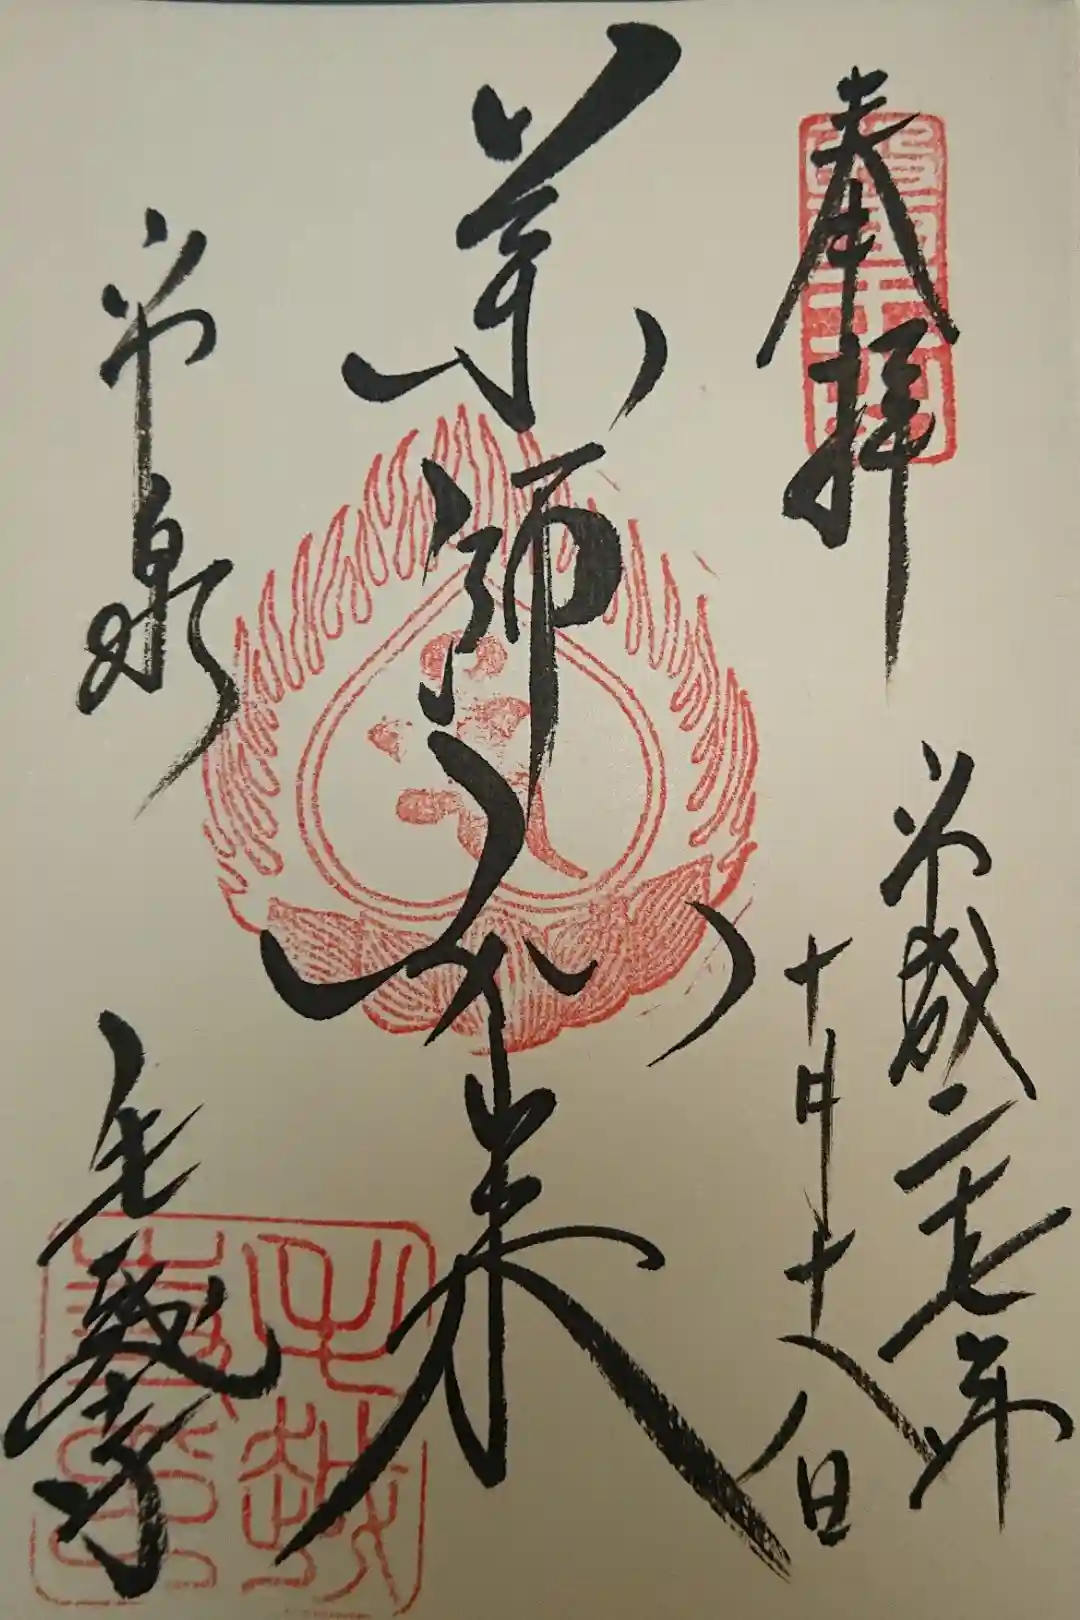 奉拝
平成二十七年
十月十八日
薬師如来
平泉
毛越寺